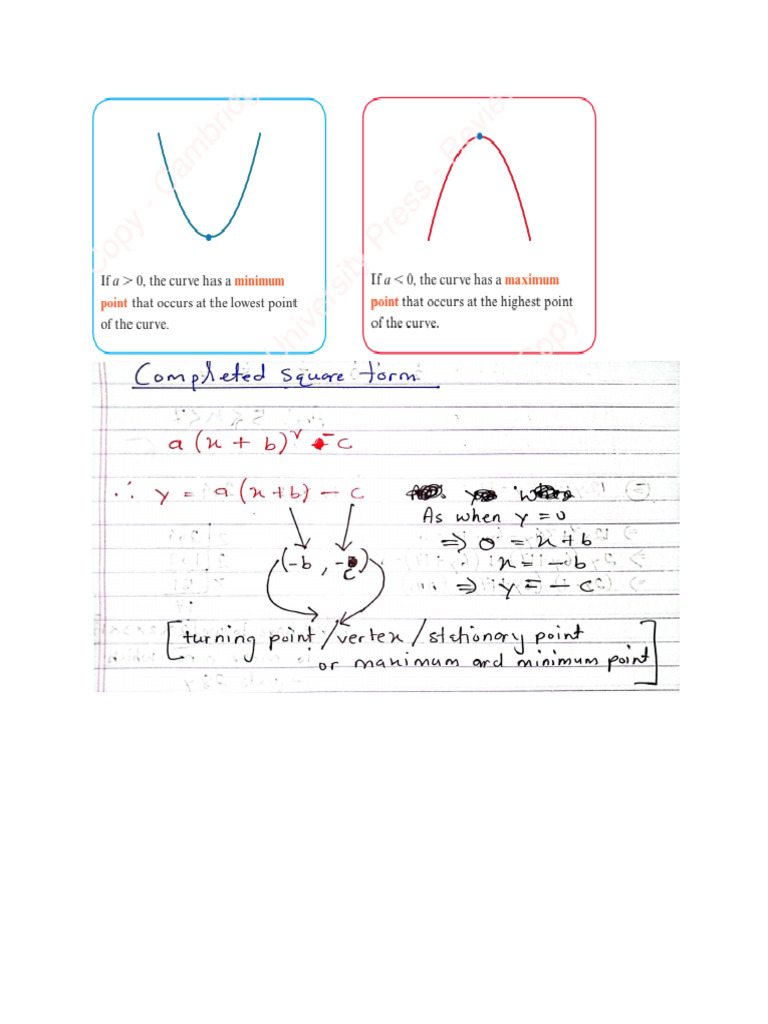 If a > 0, the curve has a minimum
point that occurs at the lowest point
of the curve.
If a < 0, the curve has a maximum
point that occurs at the highest point
of the curve.
Copy - Cambridge
University Press - Review
Copy
Completed square form
a(x + b)² - c
∴ y = a(x+b) - c
As when y = 0
⇒ 0 = x + b
x = - b
⇒ y = - c
(-b, -c)
[turning point/vertex/stationary point
or maximum and minimum point]